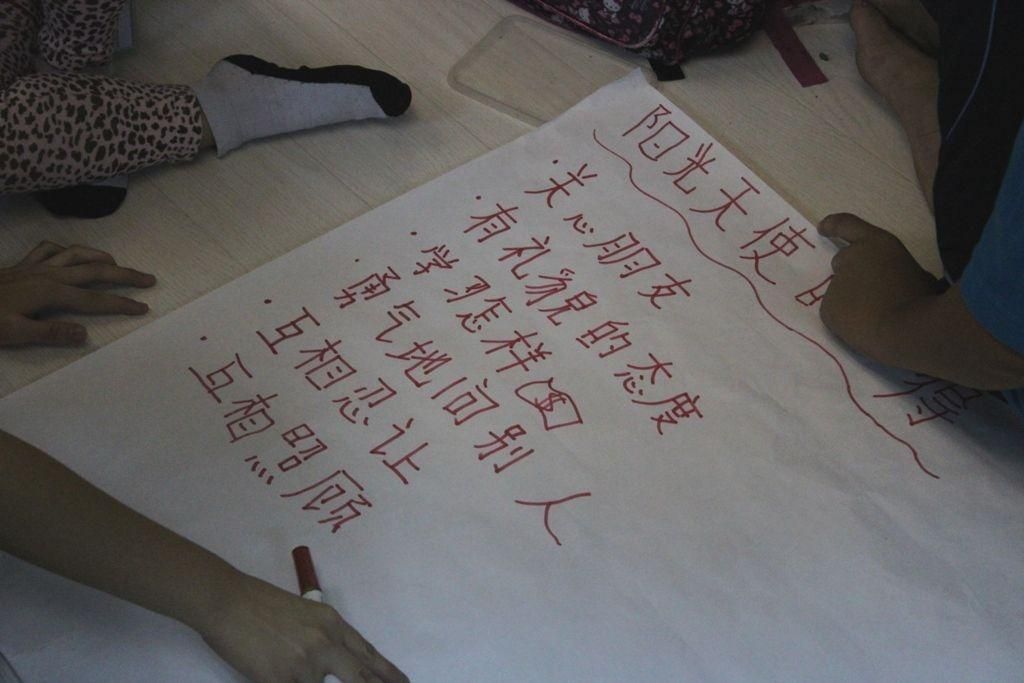 阳光天使的 得
·关心朋友
·有礼貌的态度
·学习怎样画
·勇气地问别人
·互相忍让
·互相照顾